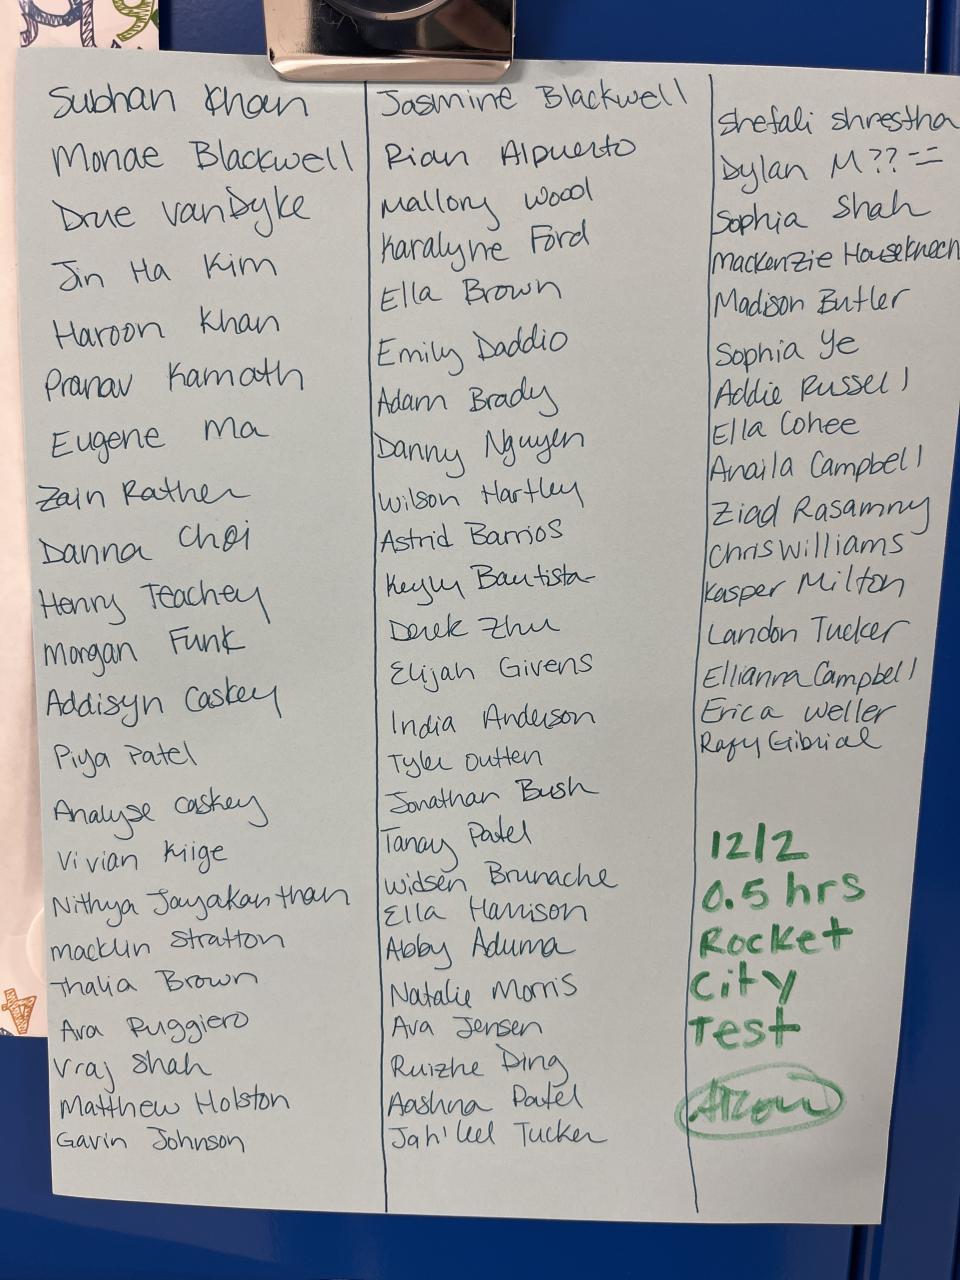 Subhan Khan
Monae Blackwell
Drue VanDyke
Jin Ha Kim
Haroon Khan
Pranav Kamath
Eugene Ma
Zain Rather
Danna Choi
Henry Teachey
Morgan Funk
Addisyn Caskey
Piya Patel
Analyse Caskey
Vivian Kiige
Nithya Jayakanthan
Macklin Stratton
Thalia Brown
Ava Ruggiero
Vraj Shah
Matthew Holston
Gavin Johnson
Jasmine Blackwell
Rian Alpuerto
Mallory Wood
Karalyne Ford
Ella Brown
Emily Daddio
Adam Brady
Danny Nguyen
Wilson Hartley
Astrid Barrios
Keyly Bautista
Derek Zhu
Elijah Givens
India Anderson
Tyler Outten
Jonathan Bush
Tanay Patel
Widsen Brunache
Ella Harrison
Abby Aduma
Natalie Morris
Ava Jensen
Ruizhe Ding
Aashna Patel
Tucker
Shefali Shrestha
Dylan M??
Sophia Shah
Mackenzie Houseknech
Madison Butler
Sophia Ye
Addie Russell
Ella Cohee
Anaila Campbell
Ziad Rasamny
Chris Williams
Kasper Milton
Landon Tucker
Ellianna Campbell
Erica Weller
Rafy Gibrial
12/2
0.5 hrs
Rocket
City
Test